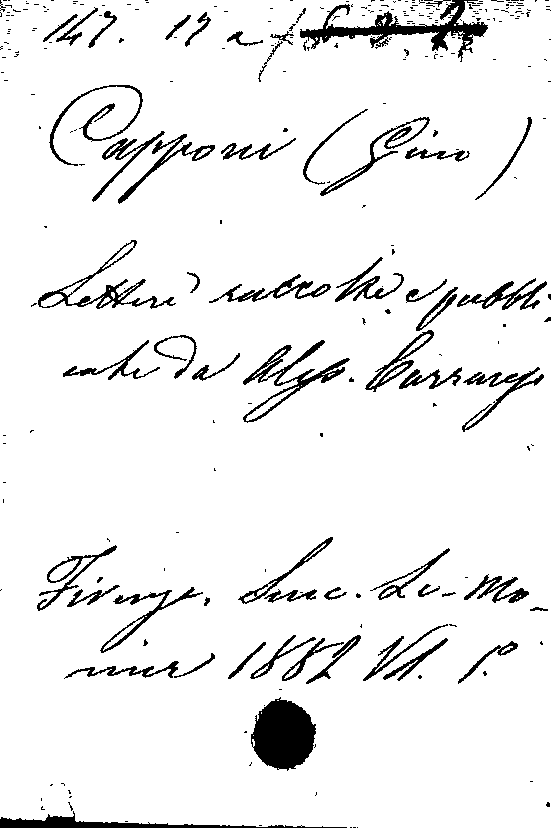 147. 17 a f
Capponi (Gino)
Lettere raccolte e pubbli-
cate da Aless. Carraresi
Firenze. Succ. Le-Mo-
nier 1882 Vol. 1.º